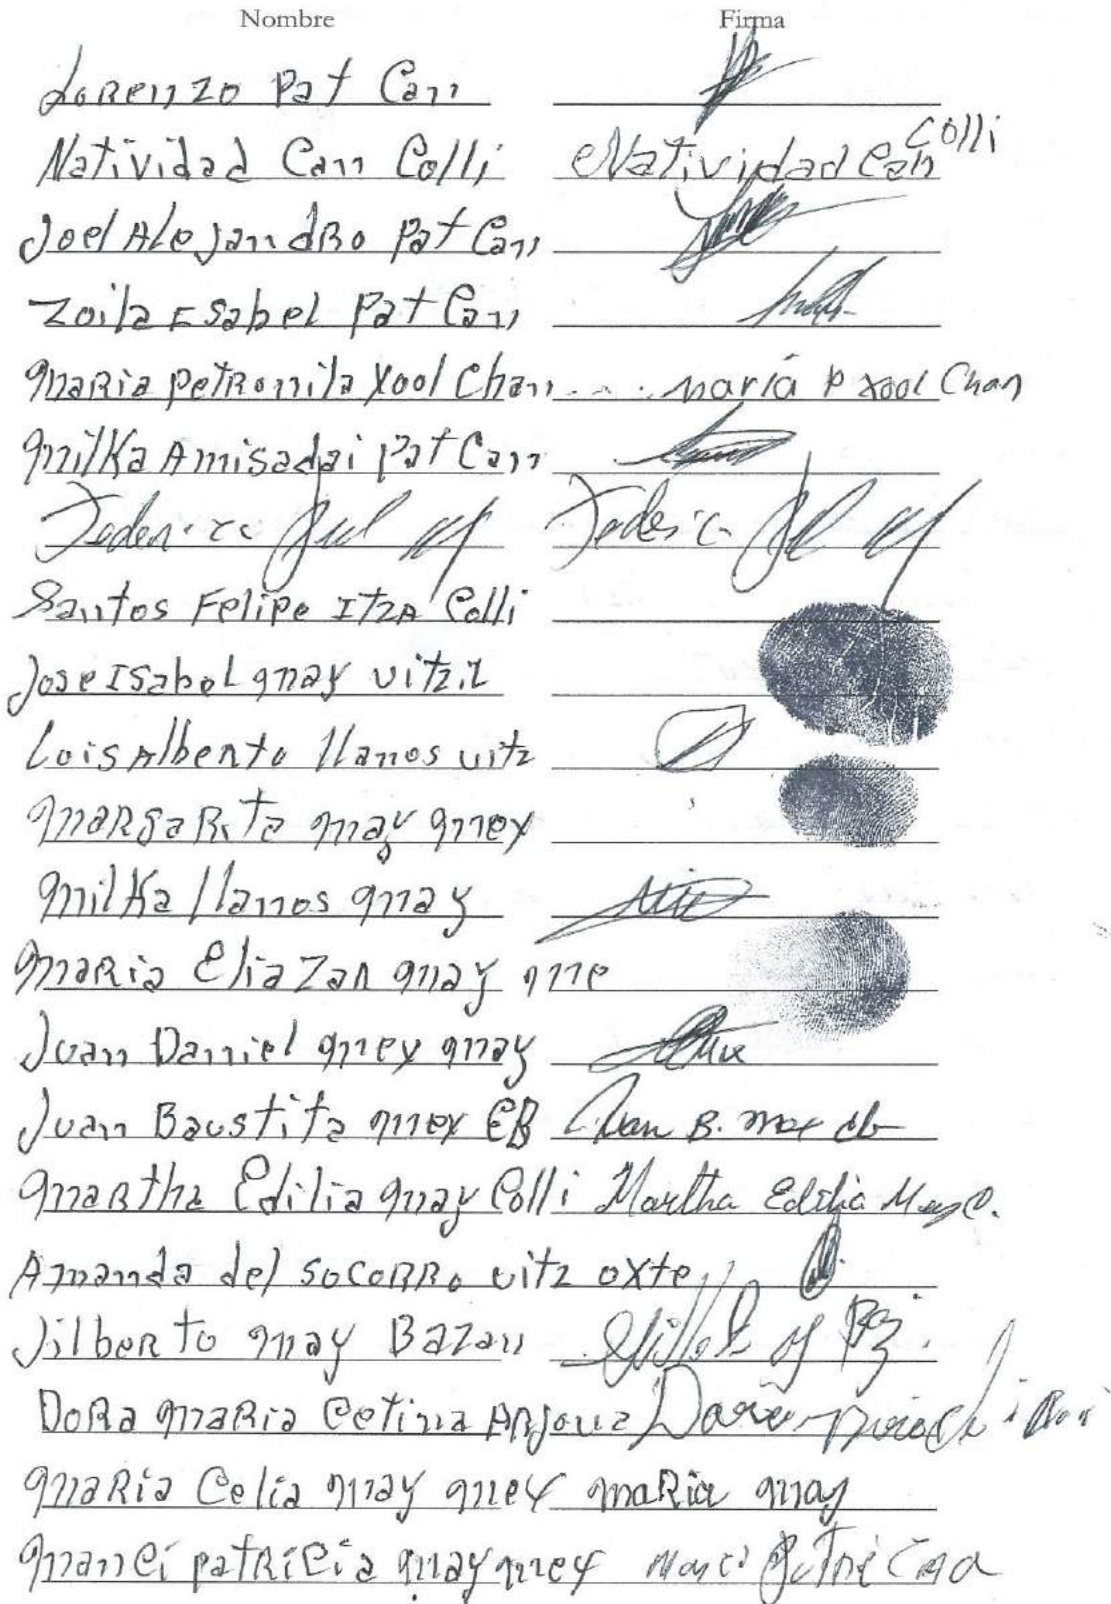 Nombre Firma
Lorenzo Pat Can
Natividad Can Colli Natividad Can Colli
Joel Alejandro Pat Can
Zoila Esabel Pat Can
Maria Petronila Xool Chan María P Xool Chan
Milka Amisadai Pat Can
Federico Federico
Santos Felipe Itza Colli
Jose Isabel May Uitzil
Lois Alberto Llanos Uitz
Margarita May Mex
Milka Llanos May
Maria Eliazar May Me
Juan Daniel Mex May
Juan Baustita Mex EB Juan B. Mex
Martha Edilia May Colli Martha Edilia May C.
Amanda del Socorro Uitz Oxte
Jilberto May Bazan
Dora Maria Cetina Anjona
Maria Celia May Mex Maria May
Manci Patricia May Mex